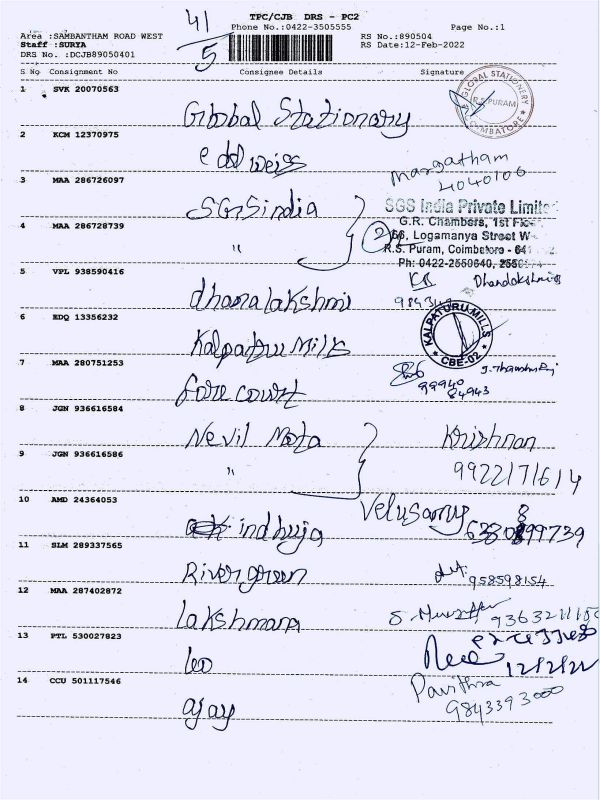 41/5
TPC/CJB DRS - PC2
Phone No.:0422-3505555 Page No.:1
Area :SAMBANTHAM ROAD WEST RS No.:890504
Staff :SURYA RS Date:12-Feb-2022
DRS No. :DCJB89050401
S No Consignment No Consignee Details Signature
1 SVK 20070563
Global Stationary
GLOBAL STATIONERY
R.S. PURAM
COIMBATORE
2 KCM 12370975
edelweiss
Margatham
4040106
3 MAA 286726097
SGS india
SGS India Private Limited
G.R. Chambers, 1st
4 MAA 286728739
"
2
66, Logamanya Street W
R.S. Puram, Coimbatore - 641
Ph: 0422-2550640,
5 VPL 938590416
dhanalakshmi
6 EDQ 13356232
Kalpatru Mills
KALPATURU MILLS
CBE-02
7 MAA 280751253
fore court
99940
84943
8 JGN 936616584
Nevil Mota
Krishnan
9 JGN 936616586
"
9922171614
10 AMD 24364053
indhuja
Velusamy
11 SLM 289337565
River green
958598154
12 MAA 287402872
lakshmana
13 PTL 530027823
leo
12/2/22
14 CCU 501117546
ajay
Pavithra
9843393000